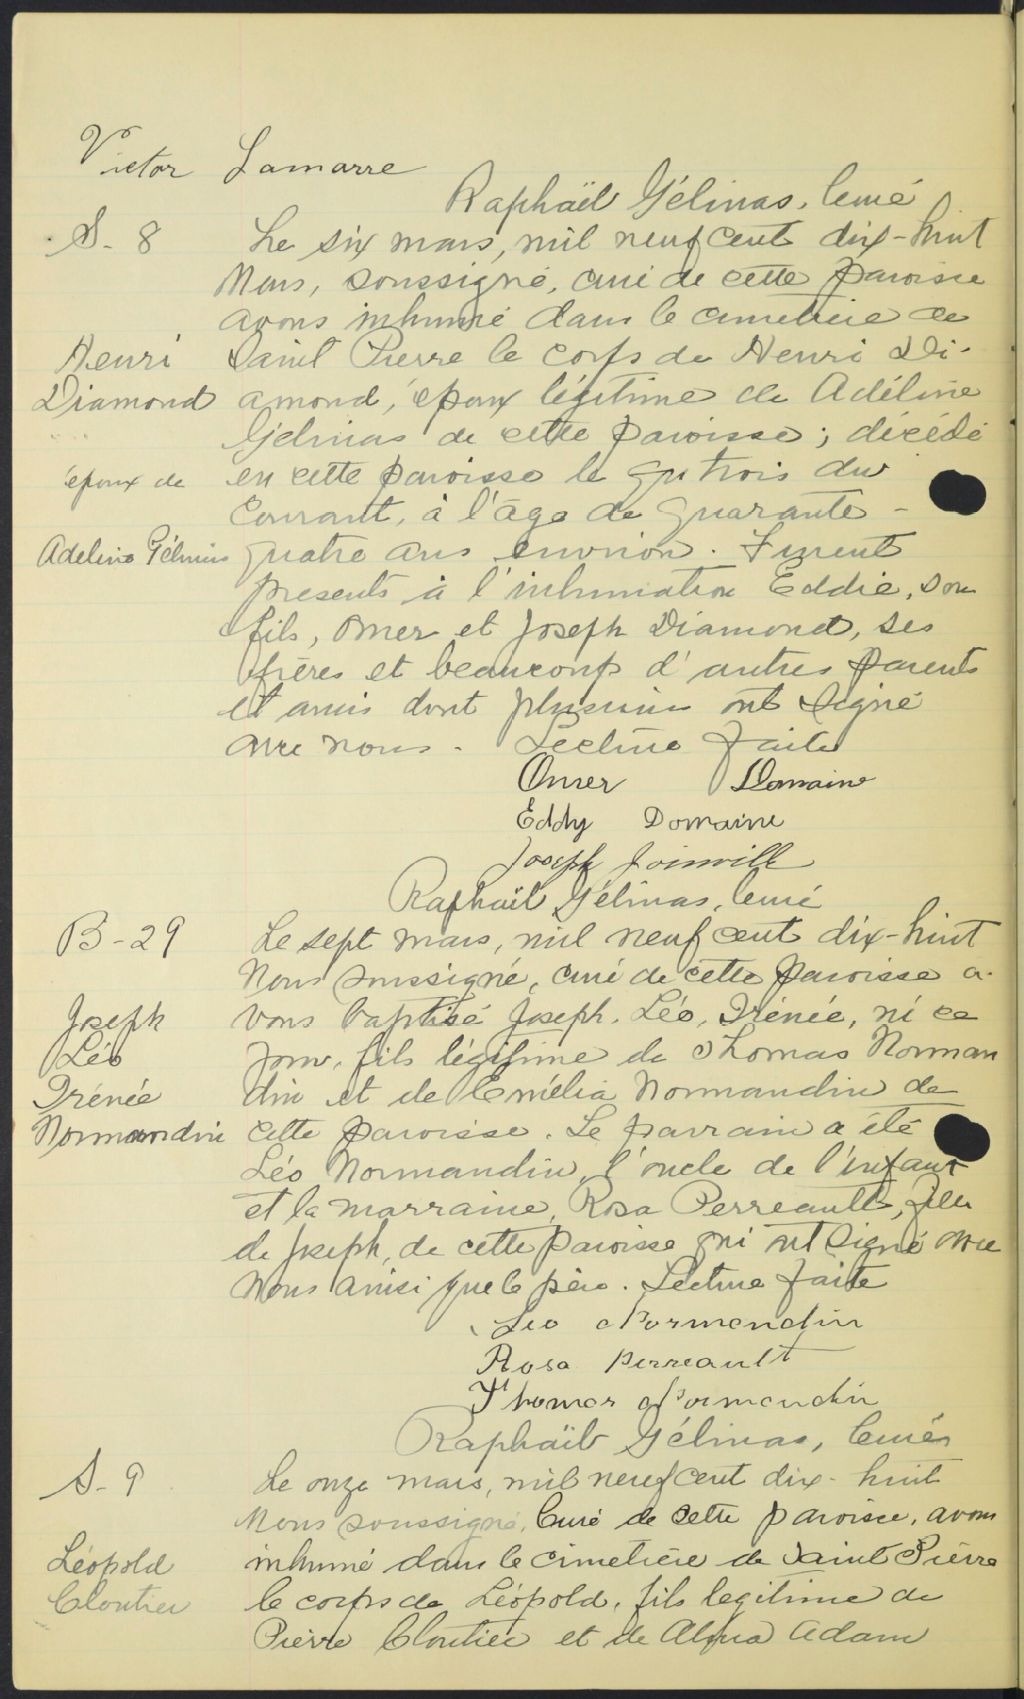 Victor Lamarre
Raphaël Gélinas, Curé
S- 8
Le six mars, mil neuf cent dix-huit
Nous, soussigné, curé de cette paroisse
avons inhumé dans le cimetière de
Henri
Diamond
époux de
Adelina Gélinas
Saint Pierre le corps de Henri Di-
amond, époux légitime de Adéline
Gélinas de cette paroisse; décédé
en cette paroisse le trois du
Courant, à l'âge de quarante -
quatre ans environ. Furent
presents à l'inhumation Eddie, son
fils, Omer et Joseph Diamond, ses
frères et beaucoup d'autres parents
et amis dont plusieurs ont signé
avec nous. Lecture faite
Omer Domaine
Eddy Domaine
Joseph Joinvill
Raphaël Gélinas, Curé
B-29
Le sept mars, mil neuf cent dix-huit
Nous soussigné, curé de cette paroisse a-
Joseph
Léo
Irénée
Normandin
vons baptisé Joseph, Léo, Irénée, né ce
jour, fils légitime de Thomas Norman
din et de Emélia Normandin de
cette paroisse. Le parrain a été
Léo Normandin, l'oncle de l'enfant
et la marraine, Rosa Perreault, fille
de Joseph, de cette paroisse qui ont signé avec
nous ainsi que le père. Lecture faite
Leo Normendin
Rosa Perreault
Thomas Normendin
Raphaël Gélinas, Curé
S- 9
Le onze mars, mil neuf cent dix-huit
Nous soussigné, Curé de cette paroisse, avons
Léopold
Cloutier
inhumé dans le cimetière de Saint Pierre
le corps de Léopold, fils legitime de
Pierre Cloutier et de Alma Adam